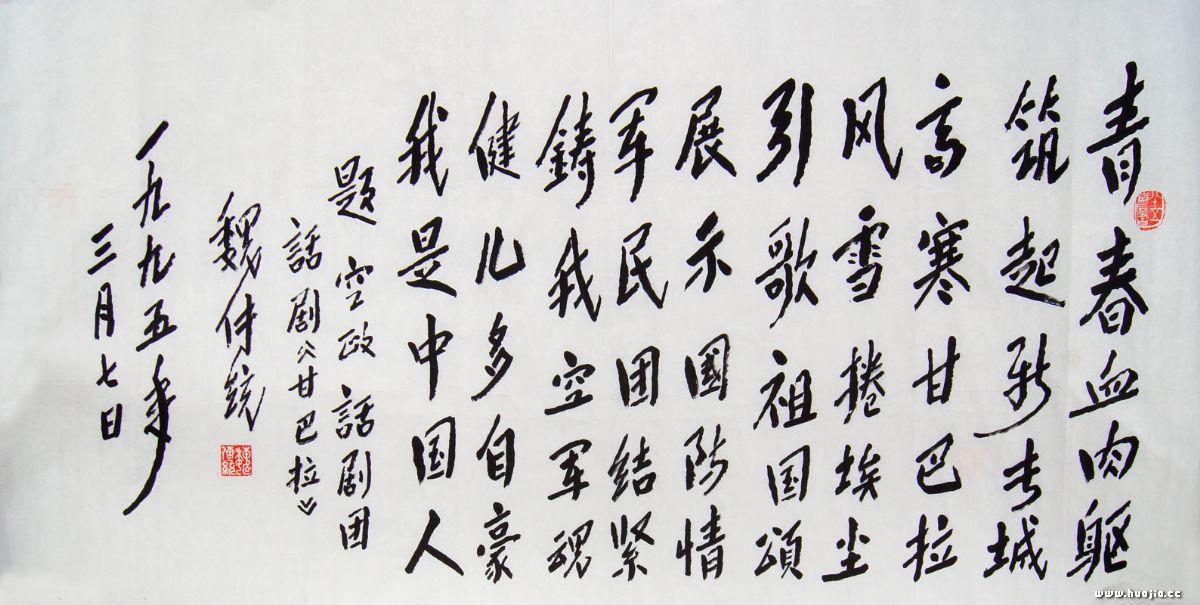 青春血肉躯
筑起新长城
高寒甘巴拉
风雪捲埃尘
引歌祖国頌
展示國防情
军民团結紧
鑄我空军魂
健儿多自豪
我是中国人
题 空政話剧团
話剧《甘巴拉》
魏传統
一九九五年
三月七日
www.huajia.cc